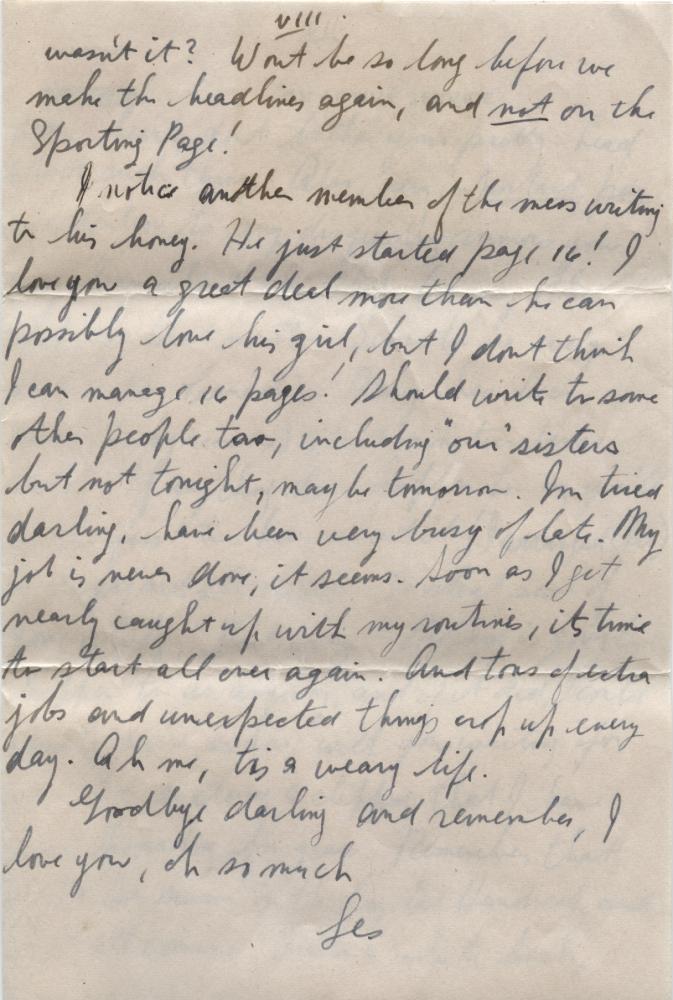 VIII.
wasn't it? Won't be so long before we
make the headlines again, and not on the
Sporting Page!
I notice another member of the mess writing
to his honey. He just started page 16! I
love you a great deal more than he can
possibly love his girl, but I don't think
I can manage 16 pages! Should write to some
other people too, including "our" sisters
but not tonight, maybe tomorrow. Im tired
darling, have been very busy of late. My
job is never done, it seems. Soon as I get
nearly caught up with my routines, its time
to start all over again. And tons of extra
jobs and unexpected things crop up every
day. Ah me, tis a weary life.
Goodbye darling and remember, I
love you, oh so much
Les